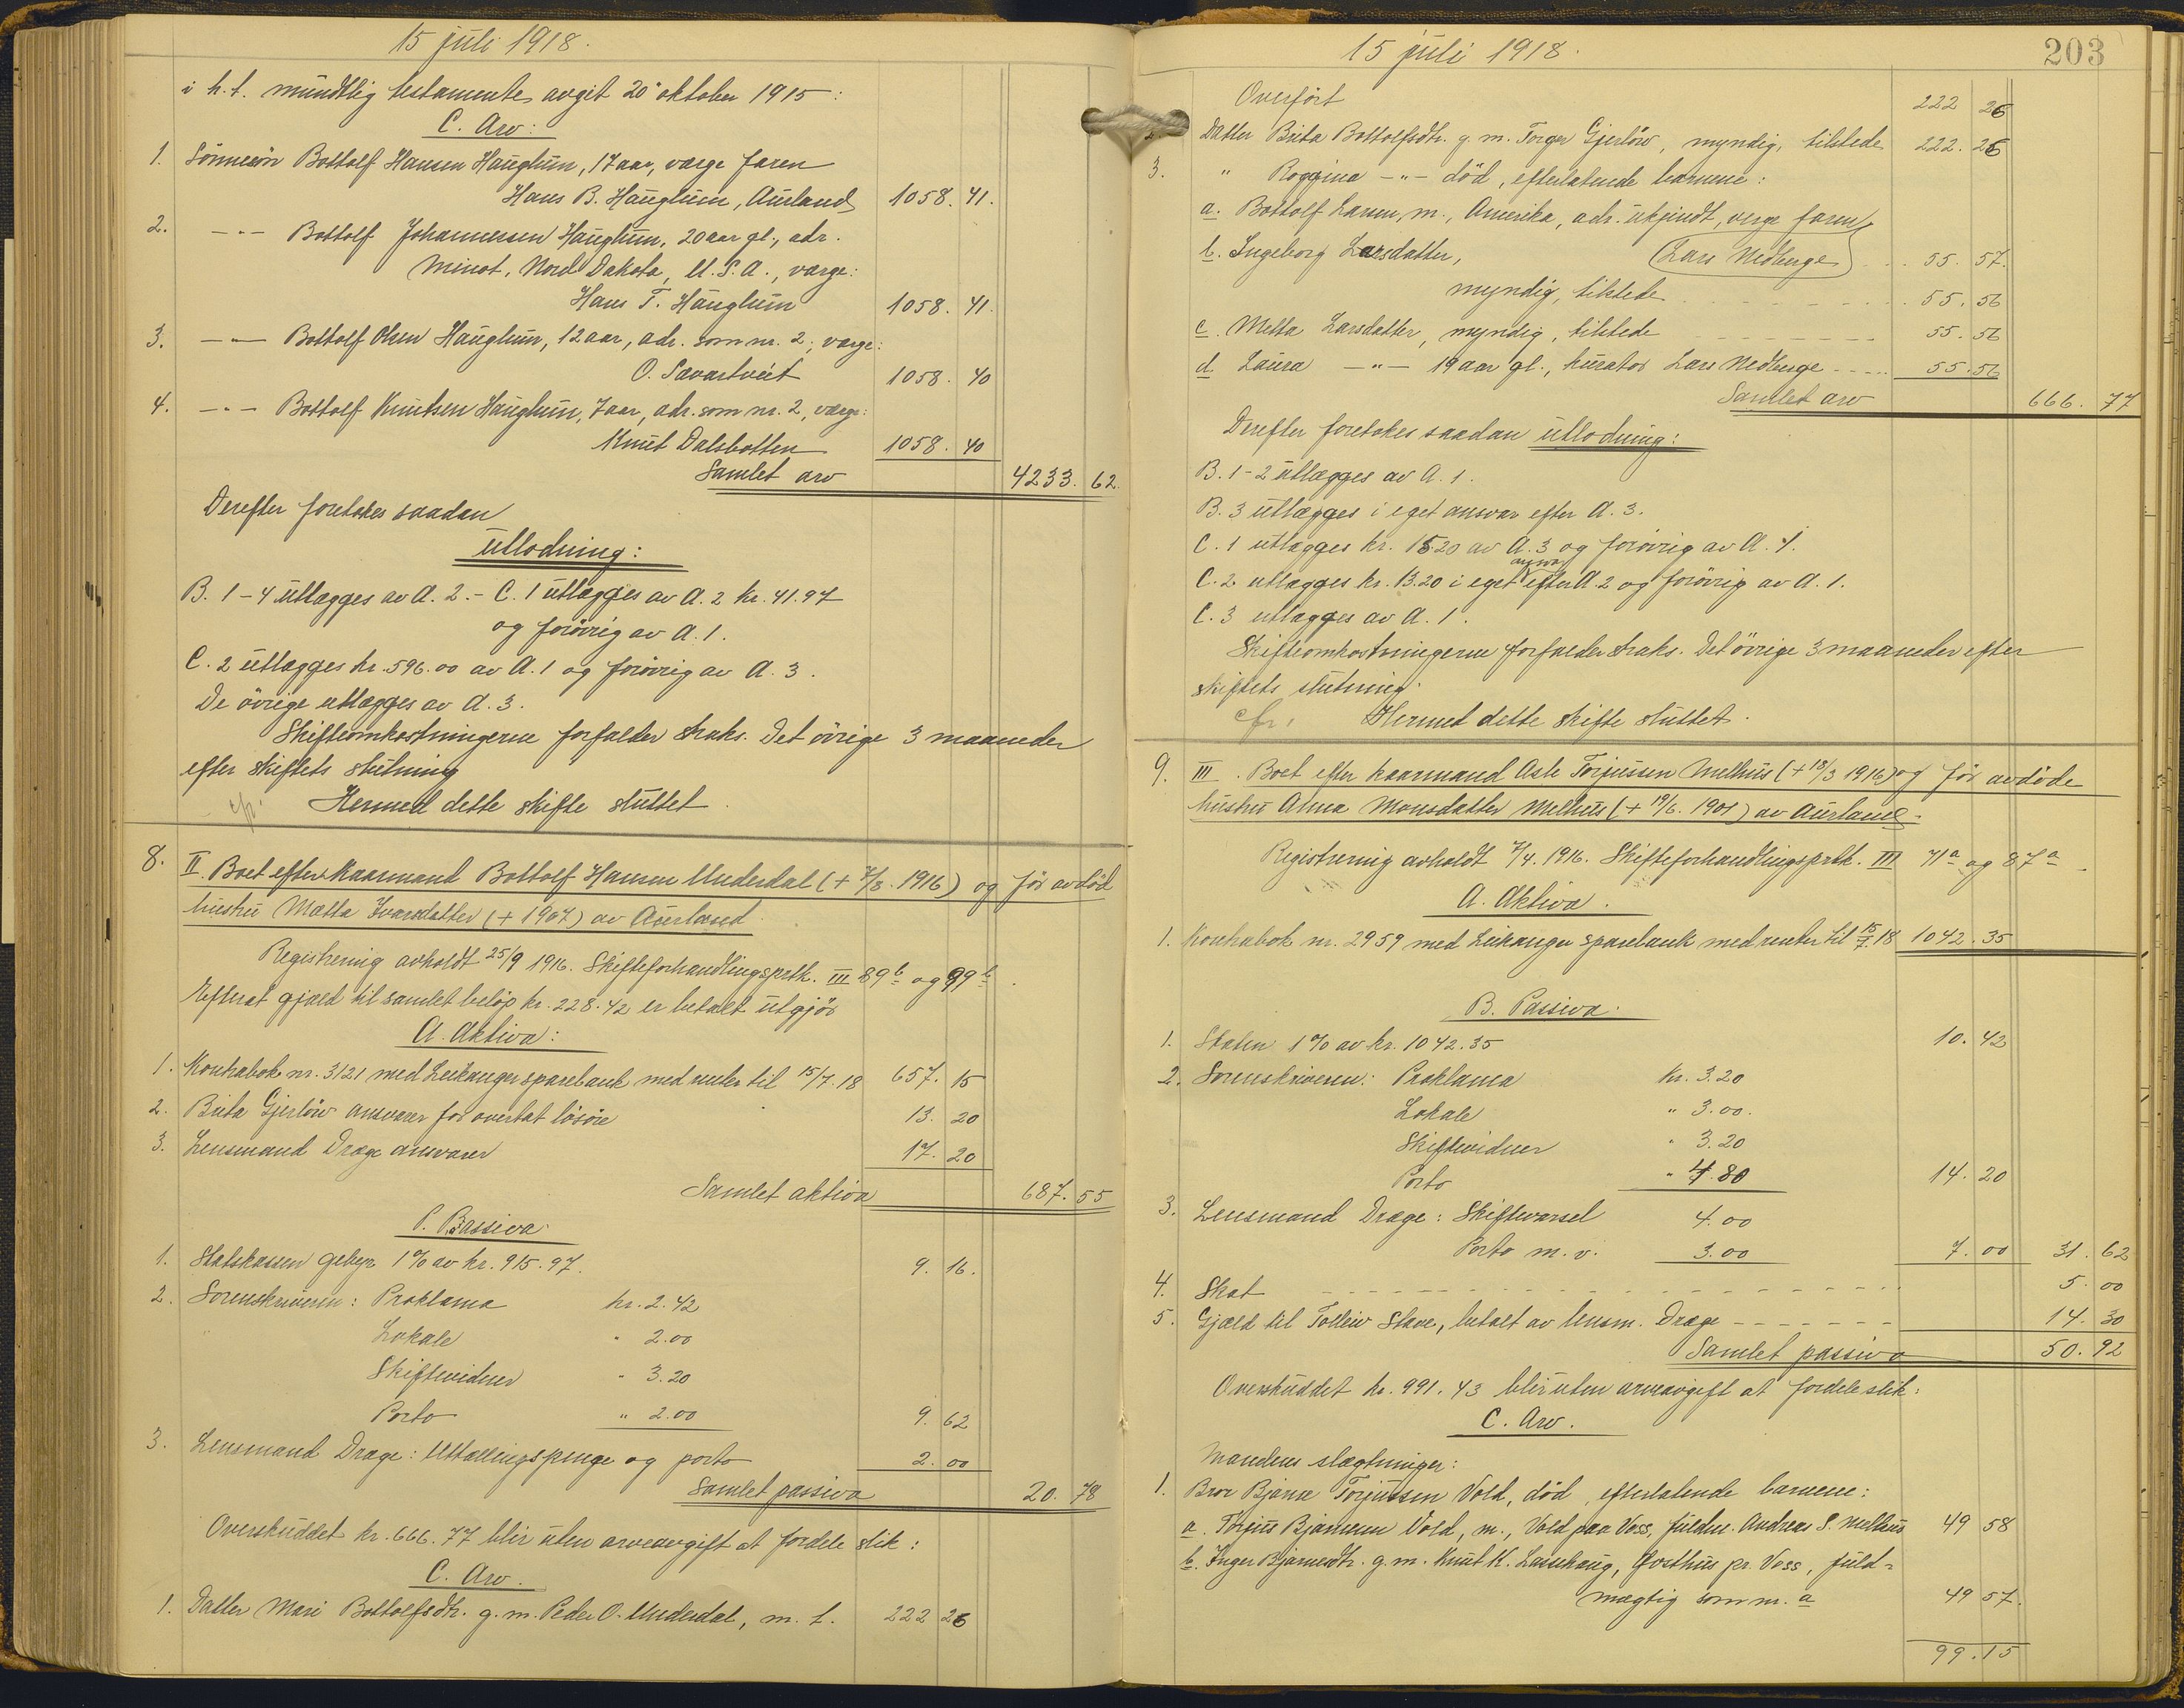 15 juli 1918.
i h.t. mundtlig testamente avgit 20 oktober 1915:
C. Arv:
1. Sönnesön Bottolf Hansen Hauglum, 17 aar, værge faren
Hans B. Hauglum, Aurland 1058. 41.
2. -"- Bottolf Johannessen Hauglum, 20 aar gl., adr.
Minot, Nord Dakota, U.S.A., værge:
Hans T. Hauglum 1058. 41.
3. -"- Bottolf Olsen Hauglum, 12 aar, adr. som nr. 2, værge:
O. Savartveit 1058. 40
4. -"- Bottolf Knutsen Hauglum, 7 aar, adr. som nr. 2, værge:
Knut Dalsbotten 1058. 40
Samlet arv 4233. 62.
Derefter foretokes saadan
utlodning:
B. 1-4 utlægges av A. 2. - C. 1 utlægges av A. 2 kr. 41.97
og forövrig av A. 1.
C. 2 utlægges kr. 596.00 av A. 1 og forövrig av A. 3.
De övrige utlægges av A. 3.
Skifteomkostningerne forfalder straks. Det övrige 3 maaneder
efter skiftets slutning
Hermed dette skifte sluttet.
8. II. Boet efter Kaarmand Bottolf Hansen Underdal (+ 7/8. 1916) og för avdöd
hustru Matta Ivarsdatter (+ 1907) av Aurland.
Registrering avholdt 25/9 1916. Skifteforhandlingsprtk. III 89b og 99b.
Efterat gjæld til samlet belöp kr. 228.42 er betalt utgjör
A. Aktiva:
1. Kontrabok nr. 3121 med Leikanger sparebank med renter til 15/7.18 657. 15
2. Brita Gjerlöw ansvarer for overtat lösöre 13. 20
3. Lensmand Drage ansvarer 17. 20
Samlet aktiva 687. 55
P. Passiva
1. Statskassen gebyr 1% av kr. 915.97. 9. 16.
2. Sorenskriveren: Proklama kr. 2.42
Lokale " 2.00
Skiftevidner " 3.20
Porto " 2.00 9. 62
3. Lensmand Drage: Uttællingspenge og porto 2. 00
Samlet passiva 20. 78
Overskuddet kr. 666.77 blir uten arveavgift at fordele slik:
C. Arv.
1. Datter Mari Bottolfsdtr. g.m. Peder O. Underdal, m. t. 222 26
15 juli 1918.
203
Overfört 222 26
2. Datter Brita Bottolfsdtr. g.m. Torger Gjerlöw, myndig, tilstede 222. 26
3. " Roggina -"- död, efterlatende barnene:
a. Bottolf Larsen, m., Amerika, adr. ukjendt, verge faren
Lars Nedberge 55. 57.
b. Ingeborg Larsdatter,
myndig, tilstede 55. 56
c. Metta Larsdatter, myndig, tilstede 55. 56
d. Laura -"- 19 aar gl., kurator Lars Nedberge 55. 56
Samlet arv 666. 77
Derefter foretokes saadan utlodning:
B. 1-2 utlægges av A. 1.
B. 3 utlægges i eget ansvar efter A. 3.
C. 1 utlægges kr. 15.20 av A. 3 og forövrig av A. 1.
C. 2 utlægges kr. 13.20 i eget ansvar efter A. 2 og forövrig av A. 1.
C. 3 utlægges av A. 1.
Skifteomkostningerne forfalder straks. Det övrige 3 maaneder efter
skiftets slutning.
cfr. Hermed dette skifte sluttet.
9. III. Boet efter kaarmand Asle Torjussen Melhus (+ 18/3 1916) og för avdöde
hustru Anna Monsdatter Melhus (+ 19/6. 1901) av Aurland.
Registrering avholdt 7/4. 1916. Skifteforhandlingsprtk. III 71a og 87a.
A. Aktiva.
1. Kontrabok nr. 2959 med Leikanger sparebank med renter til 15/7.18 1042. 35
B. Passiva.
1. Staten 1% av kr. 1042.35 10. 42
2. Sorenskriveren: Proklama kr. 3.20
Lokale " 3.00.
Skiftevidner " 3.20
Porto " 4.80 14. 20
3. Lensmand Drage: Skiftevarsel 4.00
Porto m.v. 3.00 7. 00 31. 62
4. Skat 5. 00
5. Gjæld til Tolleiv Stave, betalt av lensm. Drage 14. 30
Samlet passiva 50. 92
Overskuddet kr. 991.43 blir uten arveavgift at fordele slik:
C. Arv.
Mandens slægtninger:
1. Bror Bjarne Torjussen Vold, död, efterlatende barnene:
a. Torjus Bjarnesen Vold, m., Vold paa Voss, fuldm. Andreas S. Melhus 49 58
b. Inger Bjarnesdtr. g.m. Knut K. Lassehaug, Gosthus pr. Voss, fuld=
mægtig som nr. a 49 57.
99. 15